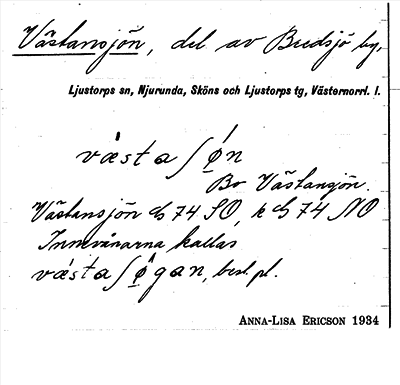 Västansjön, del av Bredsjö by,
Ljustorps sn, Njurunda, Sköns och Ljustorps tg, Västernorrl. l.
væ̀sta ʃǿ̣n
Bo Västansjön.
Västansjön G 74 SO, k G 74 NO
Innevånarna kallas
væ̀sta ʃø̣̀gan, best. pl.
ANNA-LISA ERICSON 1934